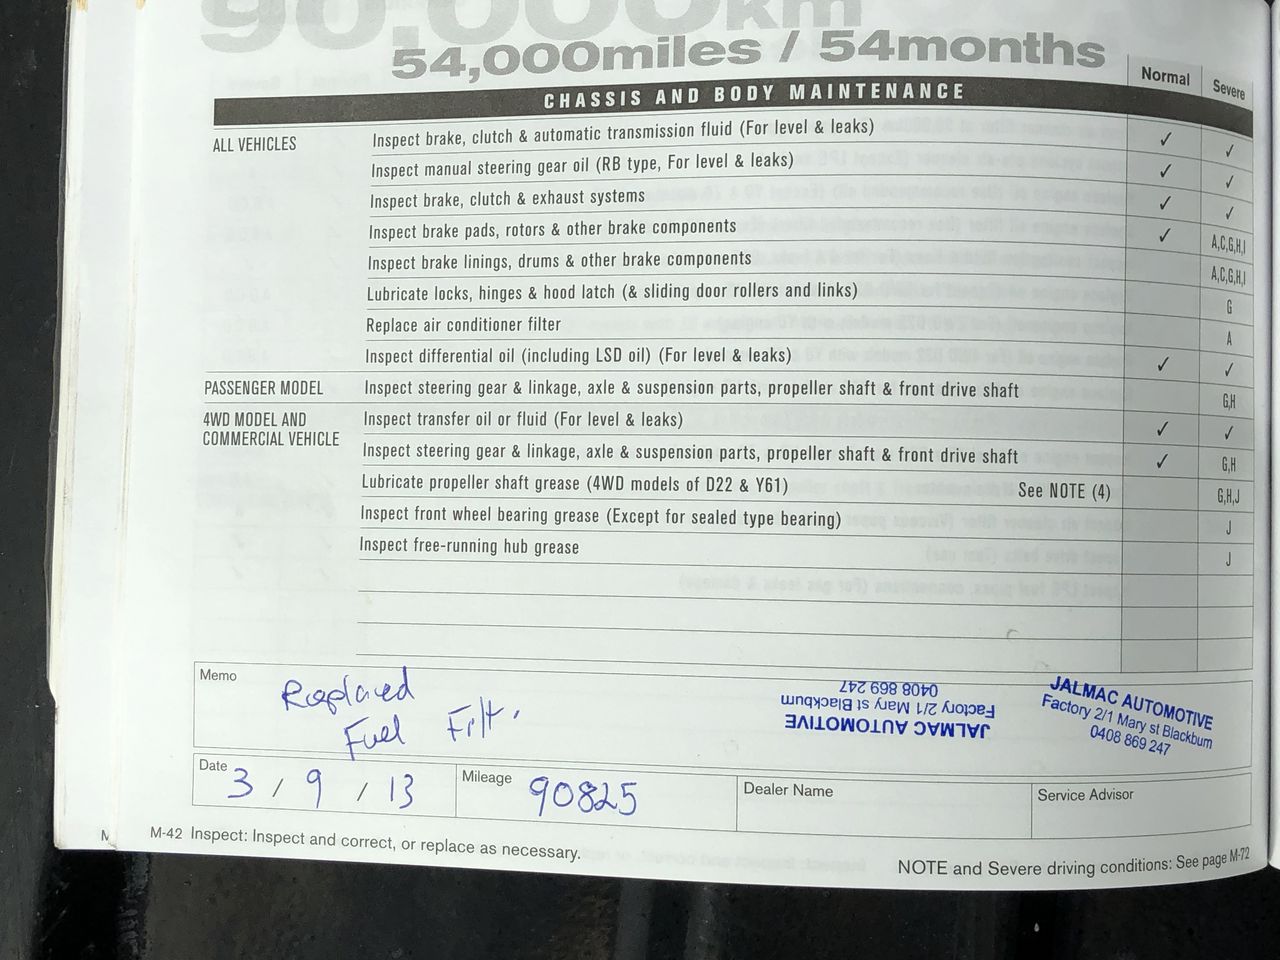 90,000km
54,000miles / 54months
Normal Severe
CHASSIS AND BODY MAINTENANCE
ALL VEHICLES Inspect brake, clutch & automatic transmission fluid (For level & leaks) ✓ ✓
Inspect manual steering gear oil (RB type, For level & leaks) ✓ ✓
Inspect brake, clutch & exhaust systems ✓ ✓
Inspect brake pads, rotors & other brake components ✓ A,C,G,H,I
Inspect brake linings, drums & other brake components A,C,G,H,I
Lubricate locks, hinges & hood latch (& sliding door rollers and links) G
Replace air conditioner filter A
Inspect differential oil (including LSD oil) (For level & leaks) ✓ ✓
PASSENGER MODEL Inspect steering gear & linkage, axle & suspension parts, propeller shaft & front drive shaft G,H
4WD MODEL AND
COMMERCIAL VEHICLE
Inspect transfer oil or fluid (For level & leaks) ✓ ✓
Inspect steering gear & linkage, axle & suspension parts, propeller shaft & front drive shaft ✓ G,H
Lubricate propeller shaft grease (4WD models of D22 & Y61) See NOTE (4) G,H,J
Inspect front wheel bearing grease (Except for sealed type bearing) J
Inspect free-running hub grease J
Memo
Replaced
Fuel Filt.
JALMAC AUTOMOTIVE
Factory 2/1 Mary st Blackburn
0408 869 247
JALMAC AUTOMOTIVE
Factory 2/1 Mary st Blackburn
0408 869 247
Date 3 / 9 / 13
Mileage 90825
Dealer Name
Service Advisor
M-42 Inspect: Inspect and correct, or replace as necessary.
NOTE and Severe driving conditions: See page M-72